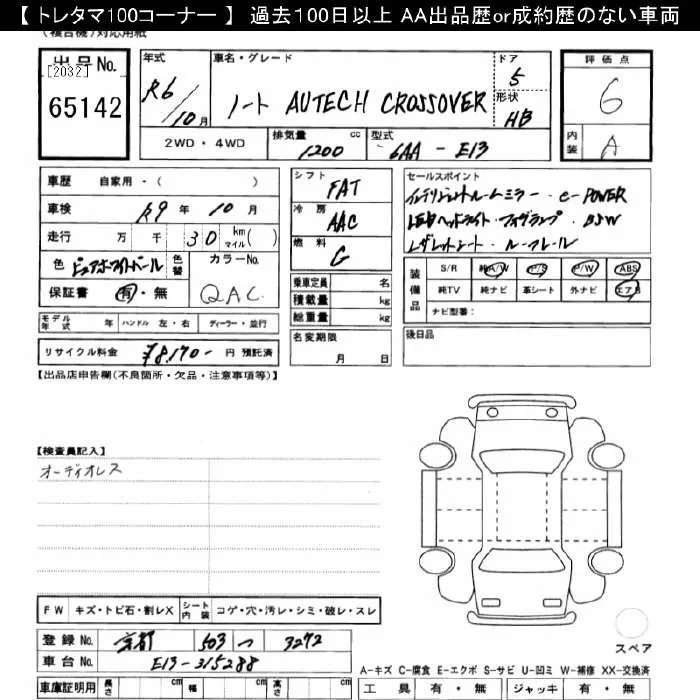 【 トレタマ100コーナー 】 過去100日以上 AA出品歴or成約歴のない車両
(複合機)対応用紙
出品No.
[2032]
65142
年式
R6/10月
車名・グレード
ノート AUTECH CROSSOVER
ドア
5
形状
HB
評価点
6
内装
A
2WD・4WD
排気量 cc
1200
型式
6AA - E13
車歴 自家用・( )
車検 R9年 10月
走行 万 千 30 km マイル( )
色 ピュアホワイトパール 色替
カラーNo.
QAC
保証書 有・無
シフト
FAT
冷房
AAC
燃料
G
セールスポイント
インテリジェントルームミラー・e-POWER
LEDヘッドライト・フォグランプ・BSW
レザレットシート・ルーフレール
装備品
S/R 純A/W P/S P/W ABS
純TV 純ナビ 革シート 外ナビ エアB
ナビ型番:
乗車定員 名
積載量 kg
総重量 kg
モデル年式 年 ハンドル 左・右 ディーラー・並行
名変期限 月 日
後日品
リサイクル料金 ¥8,170- 円 預託済
【出品店申告欄(不良箇所・欠品・注意事項等)】
【検査員記入】
オーディオレス
FW キズ・トビ石・割レX シート内装 コゲ・穴・汚レ・シミ・破レ・スレ
登録No. 京都 503 つ 3272
車台No. E13-315288
車庫証明用 長さ cm 幅 cm 高さ cm
スペア
A-キズ C-腐食 E-エクボ S-サビ U-凹ミ W-補修 XX-交換済
工具 有・無 ジャッキ 有・無